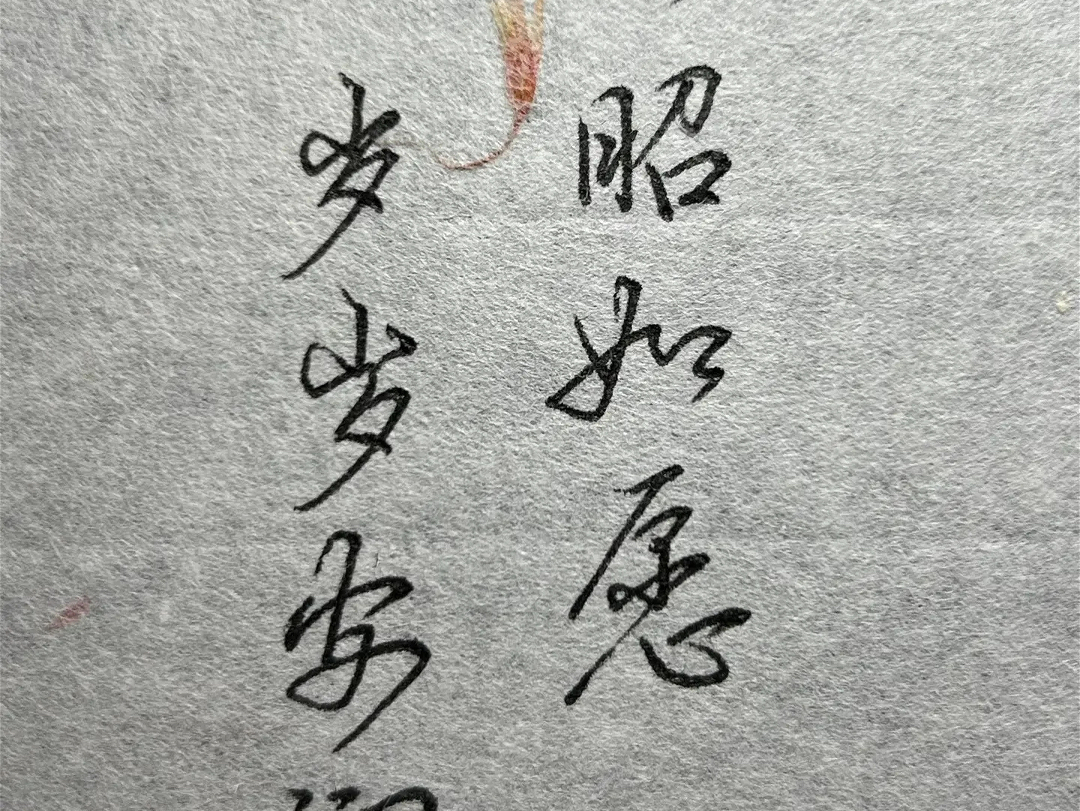 昭如愿
岁岁安